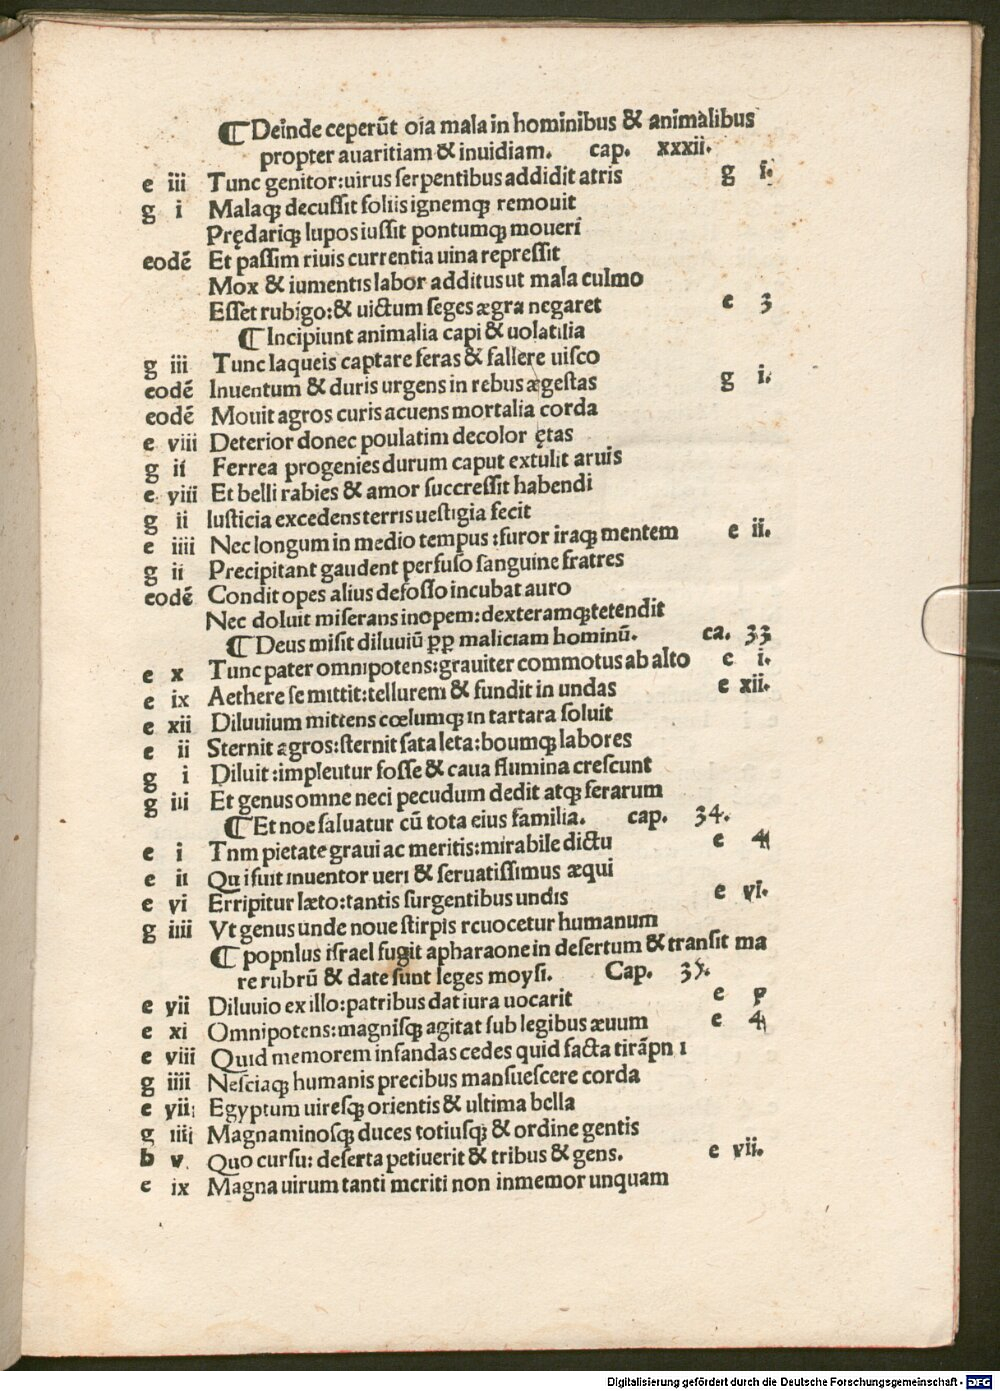 ⸿ Deinde ceperūt oīa mala in hominibus & animalibus
propter auaritiam & inuidiam. cap. xxxii.
e iii Tunc genitor:uirus serpentibus addidit atris g i.
g i Malaqꝫ decussit foliis ignemqꝫ remouit
Prędariqꝫ lupos iussit pontumqꝫ moueri
eodē Et passim riuis currentia uina repressit
Mox & iumentis labor additus ut mala culmo
Esset rubigo:& uictum seges ægra negaret e 3
⸿ Incipiunt animalia capi & uolatilia
g iii Tunc laqueis captare feras & fallere uisco
eodē Inuentum & duris urgens in rebus ægestas g i.
eodē Mouit agros curis acuens mortalia corda
e viii Deterior donec poulatim decolor ętas
g ii Ferrea progenies durum caput extulit aruis
e viii Et belli rabies & amor succressit habendi
g ii Iusticia excedens terris uestigia fecit
e iiii Nec longum in medio tempus :furor iraqꝫ mentem e ii.
g ii Precipitant gaudent perfuso sanguine fratres
eodē Condit opes alius defosso incubat auro
Nec doluit miserans inopem:dexteramqꝫ tetendit
⸿ Deus misit diluuiū ꝓꝓ maliciam hominū. ca. 33
e x Tunc pater omnipotens:grauiter commotus ab alto e i.
e ix Aethere se mittit:tellurem & fundit in undas e xii.
e xii Diluuium mittens cœlumqꝫ in tartara soluit
e ii Sternit agros:sternit sata leta:boumqꝫ labores
g i Diluit :impleutur fosse & caua flumina crescunt
g iii Et genus omne neci pecudum dedit atqꝫ ferarum
⸿ Et noe saluatur cū tota eius familia. cap. 34.
e i Tnm pietate graui ac meritis:mirabile dictu e 4
e ii Qui fuit inuentor ueri & seruatissimus æqui
e vi Erripitur læto:tantis surgentibus undis e vi.
g iiii Vt genus unde noue stirpis rcuocetur humanum
⸿ popnlus israel fugit apharaone in desertum & transit ma
re rubrū & date sunt leges moysi. Cap. 35.
e vii Diluuio ex illo:patribus dat iura uocarit e
e xi Omnipotens:magnisqꝫ agitat sub legibus æuum e 4
e viii Quid memorem infandas cedes quid facta tirāpn i
g iiii Nesciaqꝫ humanis precibus mansuescere corda
e viii Egyptum uiresqꝫ orientis & ultima bella
g iiii Magnaminosqꝫ duces totiusqꝫ & ordine gentis
b v. Quo cursu: deserta petiuerit & tribus & gens. e vii.
e ix Magna uirum tanti mcriti non inmemor unquam
Digitalisierung gefördert durch die Deutsche Forschungsgemeinschaft - DFG